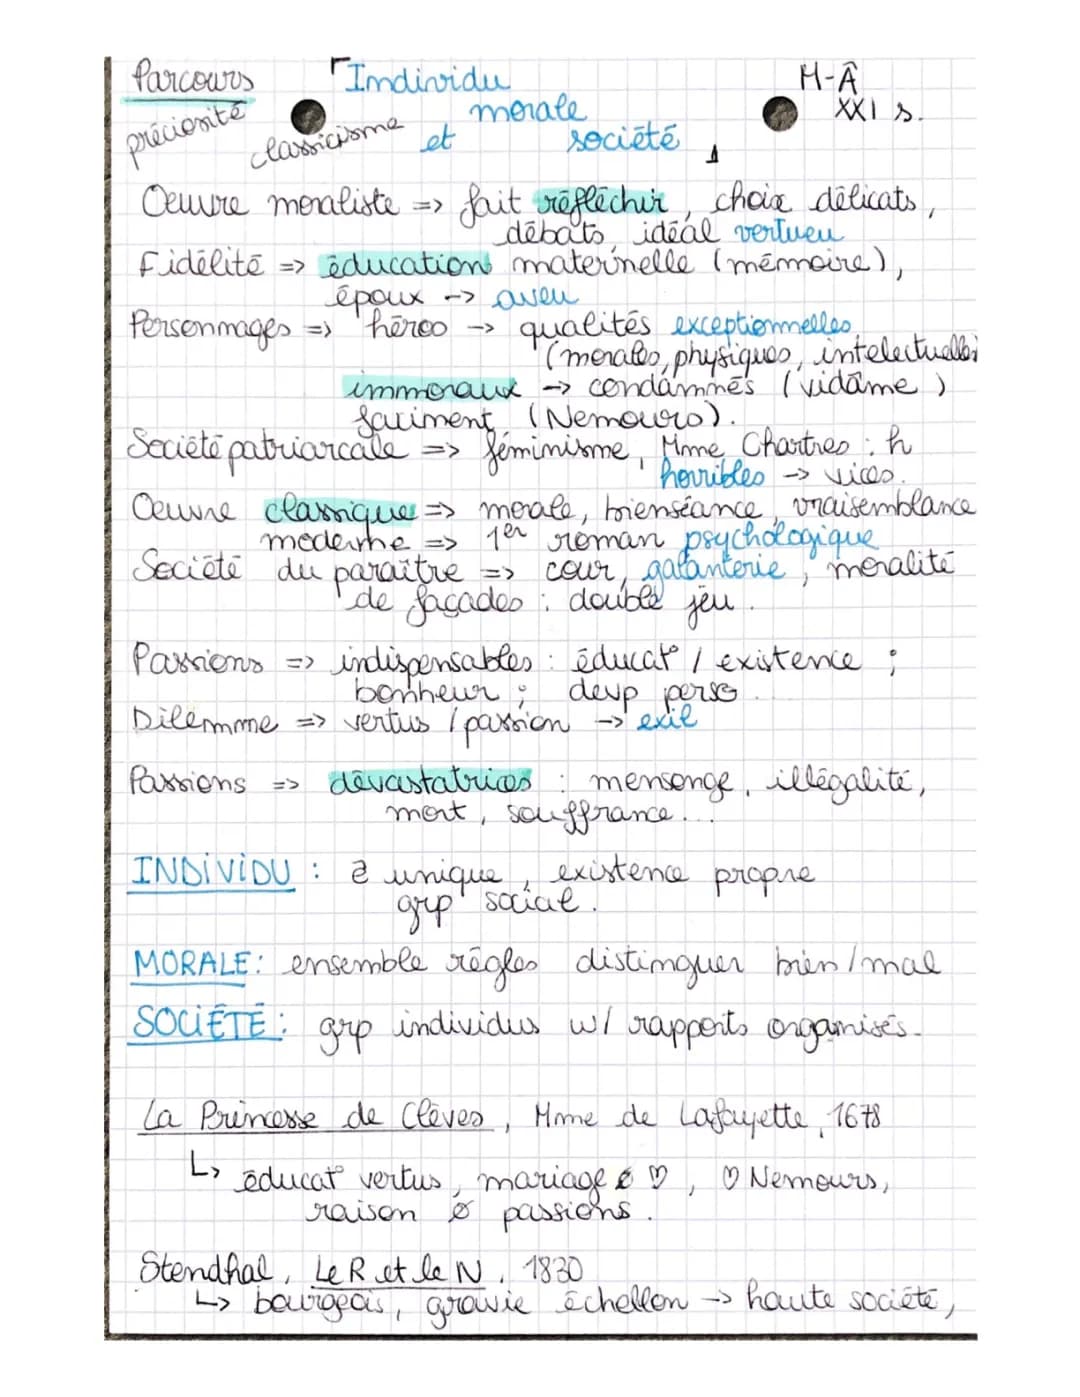 Parcours "Individu M-Â
préciosité classicisme et morale XXI s.
société "
Oeuvre moraliste => fait réfléchir, choix délicats,
débats, idéal vertueu
Fidélité => éducation maternelle (mémoire),
époux -> aveu
Personnages => héros -> qualités exceptionnelles
(morales, physiques, intelectuelles
immoraux -> condamnés (vidâme)
(Nemours).
Société patriarcale => féminisme, Mme Chartres : h
horribles -> vices.
Oeuvre classique => morale, bienséance, vraisemblance
moderne => 1er roman psychologique
Société du paraître => cour, galanterie, moralité
de façades : double jeu.
Passions => indispensables : éducat° / existence ;
bonheur ; devp perso.
Dilemme => vertus / passion -> exil
Passions => dévastatrices : mensonge, illégalité,
mort, souffrance...
INDIVIDU : unique, existence propre
grp social.
MORALE : ensemble règles distinguer bien/mal
SOCIÉTÉ : grp individus w/ rapports organisés.
La Princesse de Clèves, Mme de Lafayette, 1678
↳ éducat° vertus, mariage ♡, ♡ Nemours,
raison ø passions.
Stendhal, Le R et le N, 1830
↳ bourgeois, gravie échellon -> haute société,